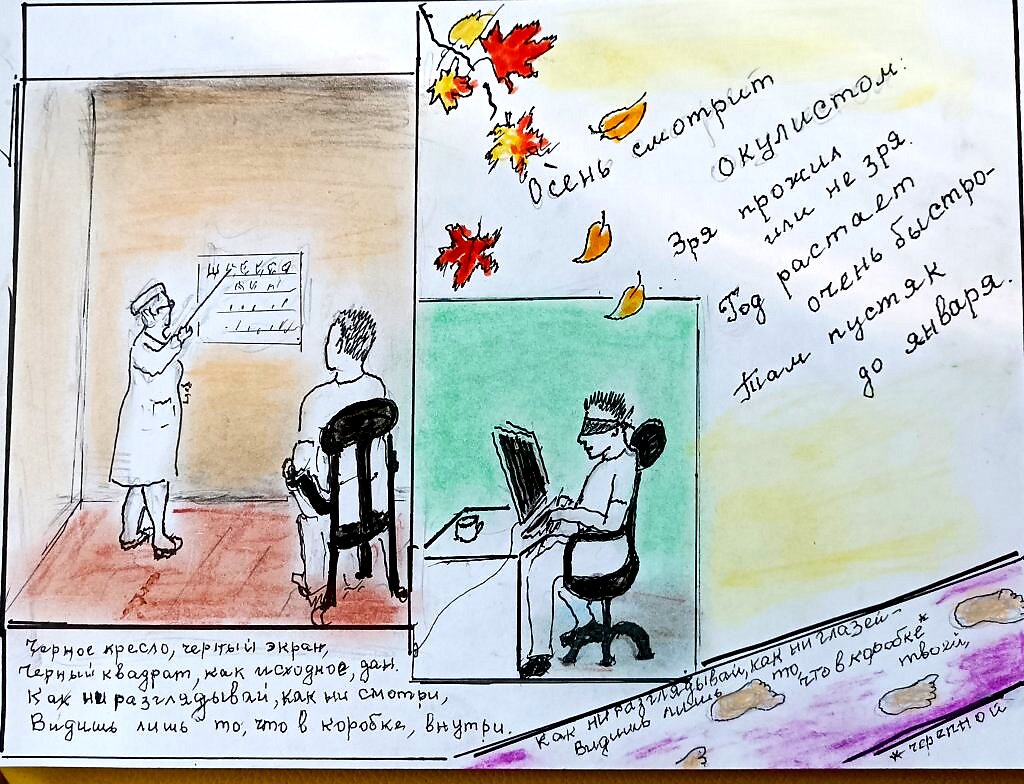 Осень смотрит
окулистом:
Зря прожил
или не зря.
Год растает
очень быстро-
Там пустяк
до января.
Черное кресло, черный экран,
Черный квадрат, как исходное, дан.
Как ни разглядывай, как ни смотри,
Видишь лишь то, что в коробке, внутри.
как ни разглядывай, как ни глазей
Видишь лишь то, что в коробке*
твоей,
*черепной